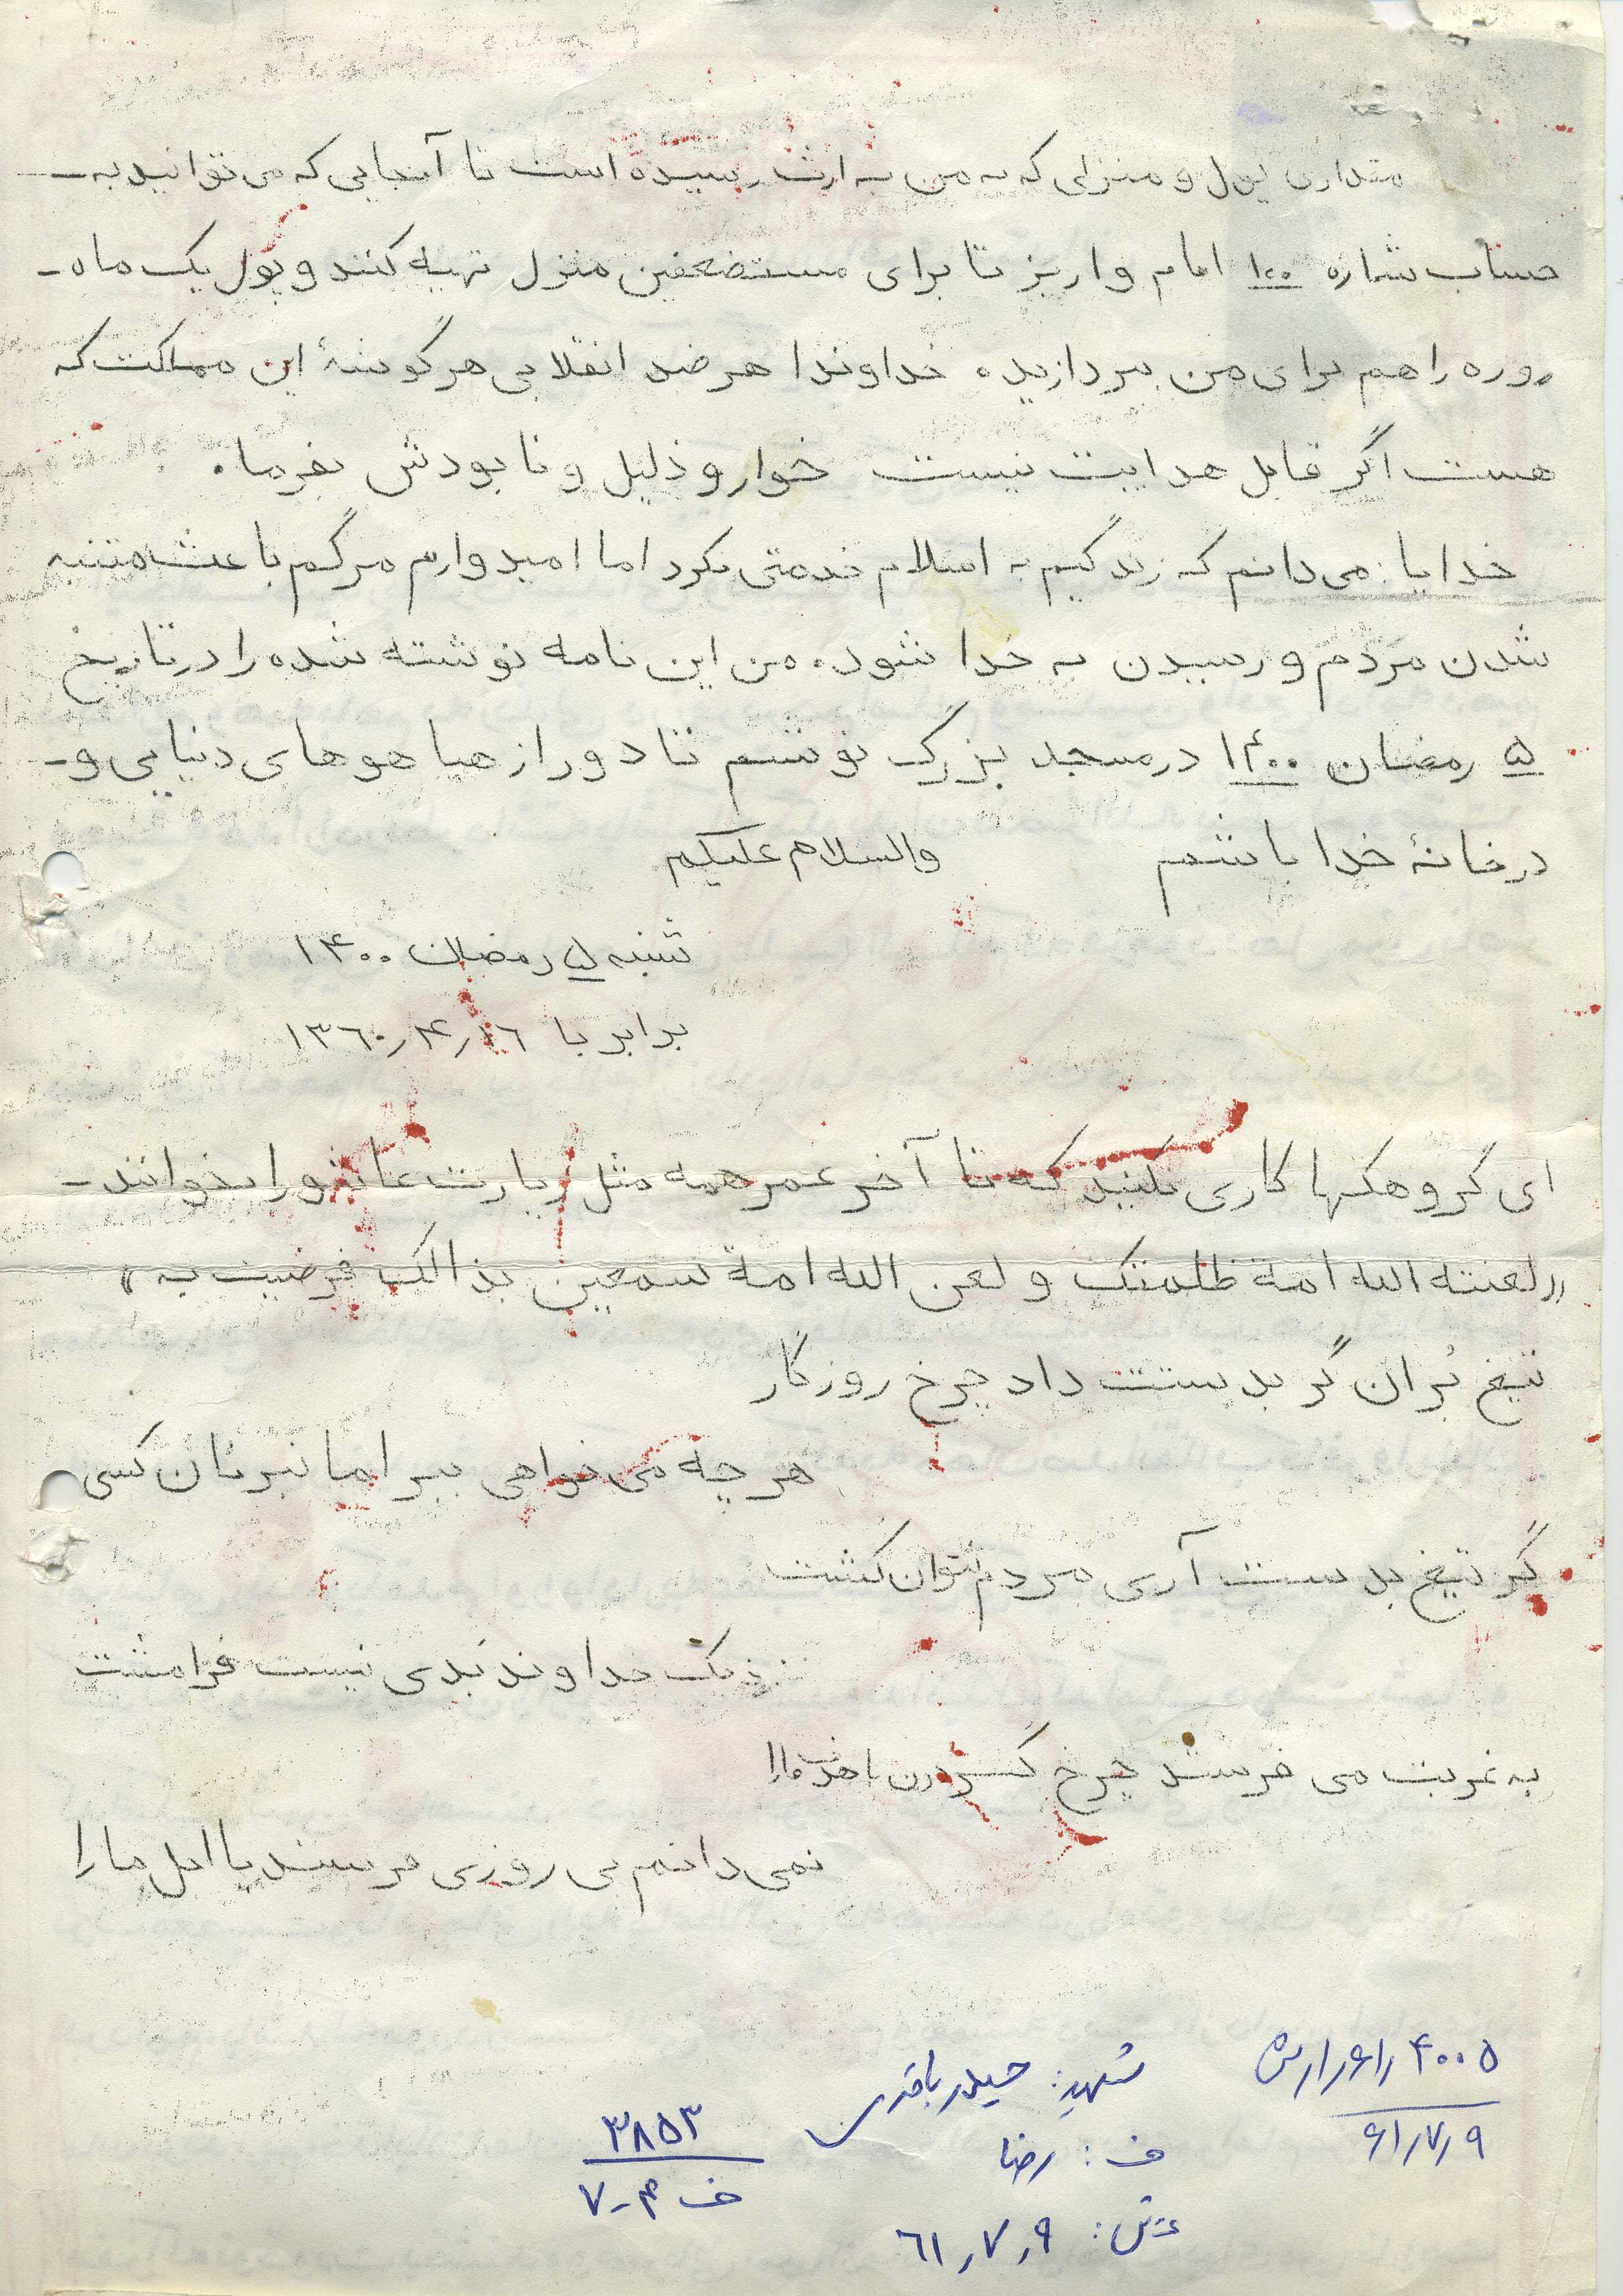 مقداری پول و منزلی که به من به ارث رسیده است تا آنجایی که می توانید به ـ
حساب شماره ۱۰۰ امام واریز تا برای مستضعفین منزل تهیه کنند و پول یک ماه ـ
روزه را هم برای من بپردازید. خداوندا هر ضد انقلابی هر گوشهٔ این مملکت که
هست اگر قابل هدایت نیست خوار و ذلیل و نابودش بفرما.
خدایا: می دانم که زندگیم به اسلام خدمتی نکرد اما امیدوارم مرگم باعث متنبه
شدن مردم و رسیدن به خدا شود. من این نامه نوشته شده را در تاریخ
۵ رمضان ۱۴۰۰ در مسجد بزرگ نوشتم تا دور از هیاهوهای دنیایی و ـ
در خانهٔ خدا باشم والسلام علیکم
شنبه ۵ رمضان ۱۴۰۰
برابر با ۱۳۶۰٫۴٫۱۶
ای گروهکها کاری نکنید که تا آخر عمر همه مثل زیارت عاشورا بخوانند ـ
«لعنته الله امة ظلمتک و لعن الله امة سمعین بذالک فرضیت به»
تیغ بُران گر بدستت داد چرخ روزگار
هر چه می خواهی ببر اما نبر نان کسی
گر تیغ بدست آری مردم نتوان کشت
نزدیک خداوند بدی نیست فرامشت
به غربت می فرستد چرخ گردون ما را
نمی دانم پی روزی فرستد یا اجل ما را
۴۰۰۵
۶۱٫۷٫۹
شهید: حیدر باقری
ف: رضا
ش: ۶۱٫۷٫۹
۳۸۵۳
ف ۴-۷